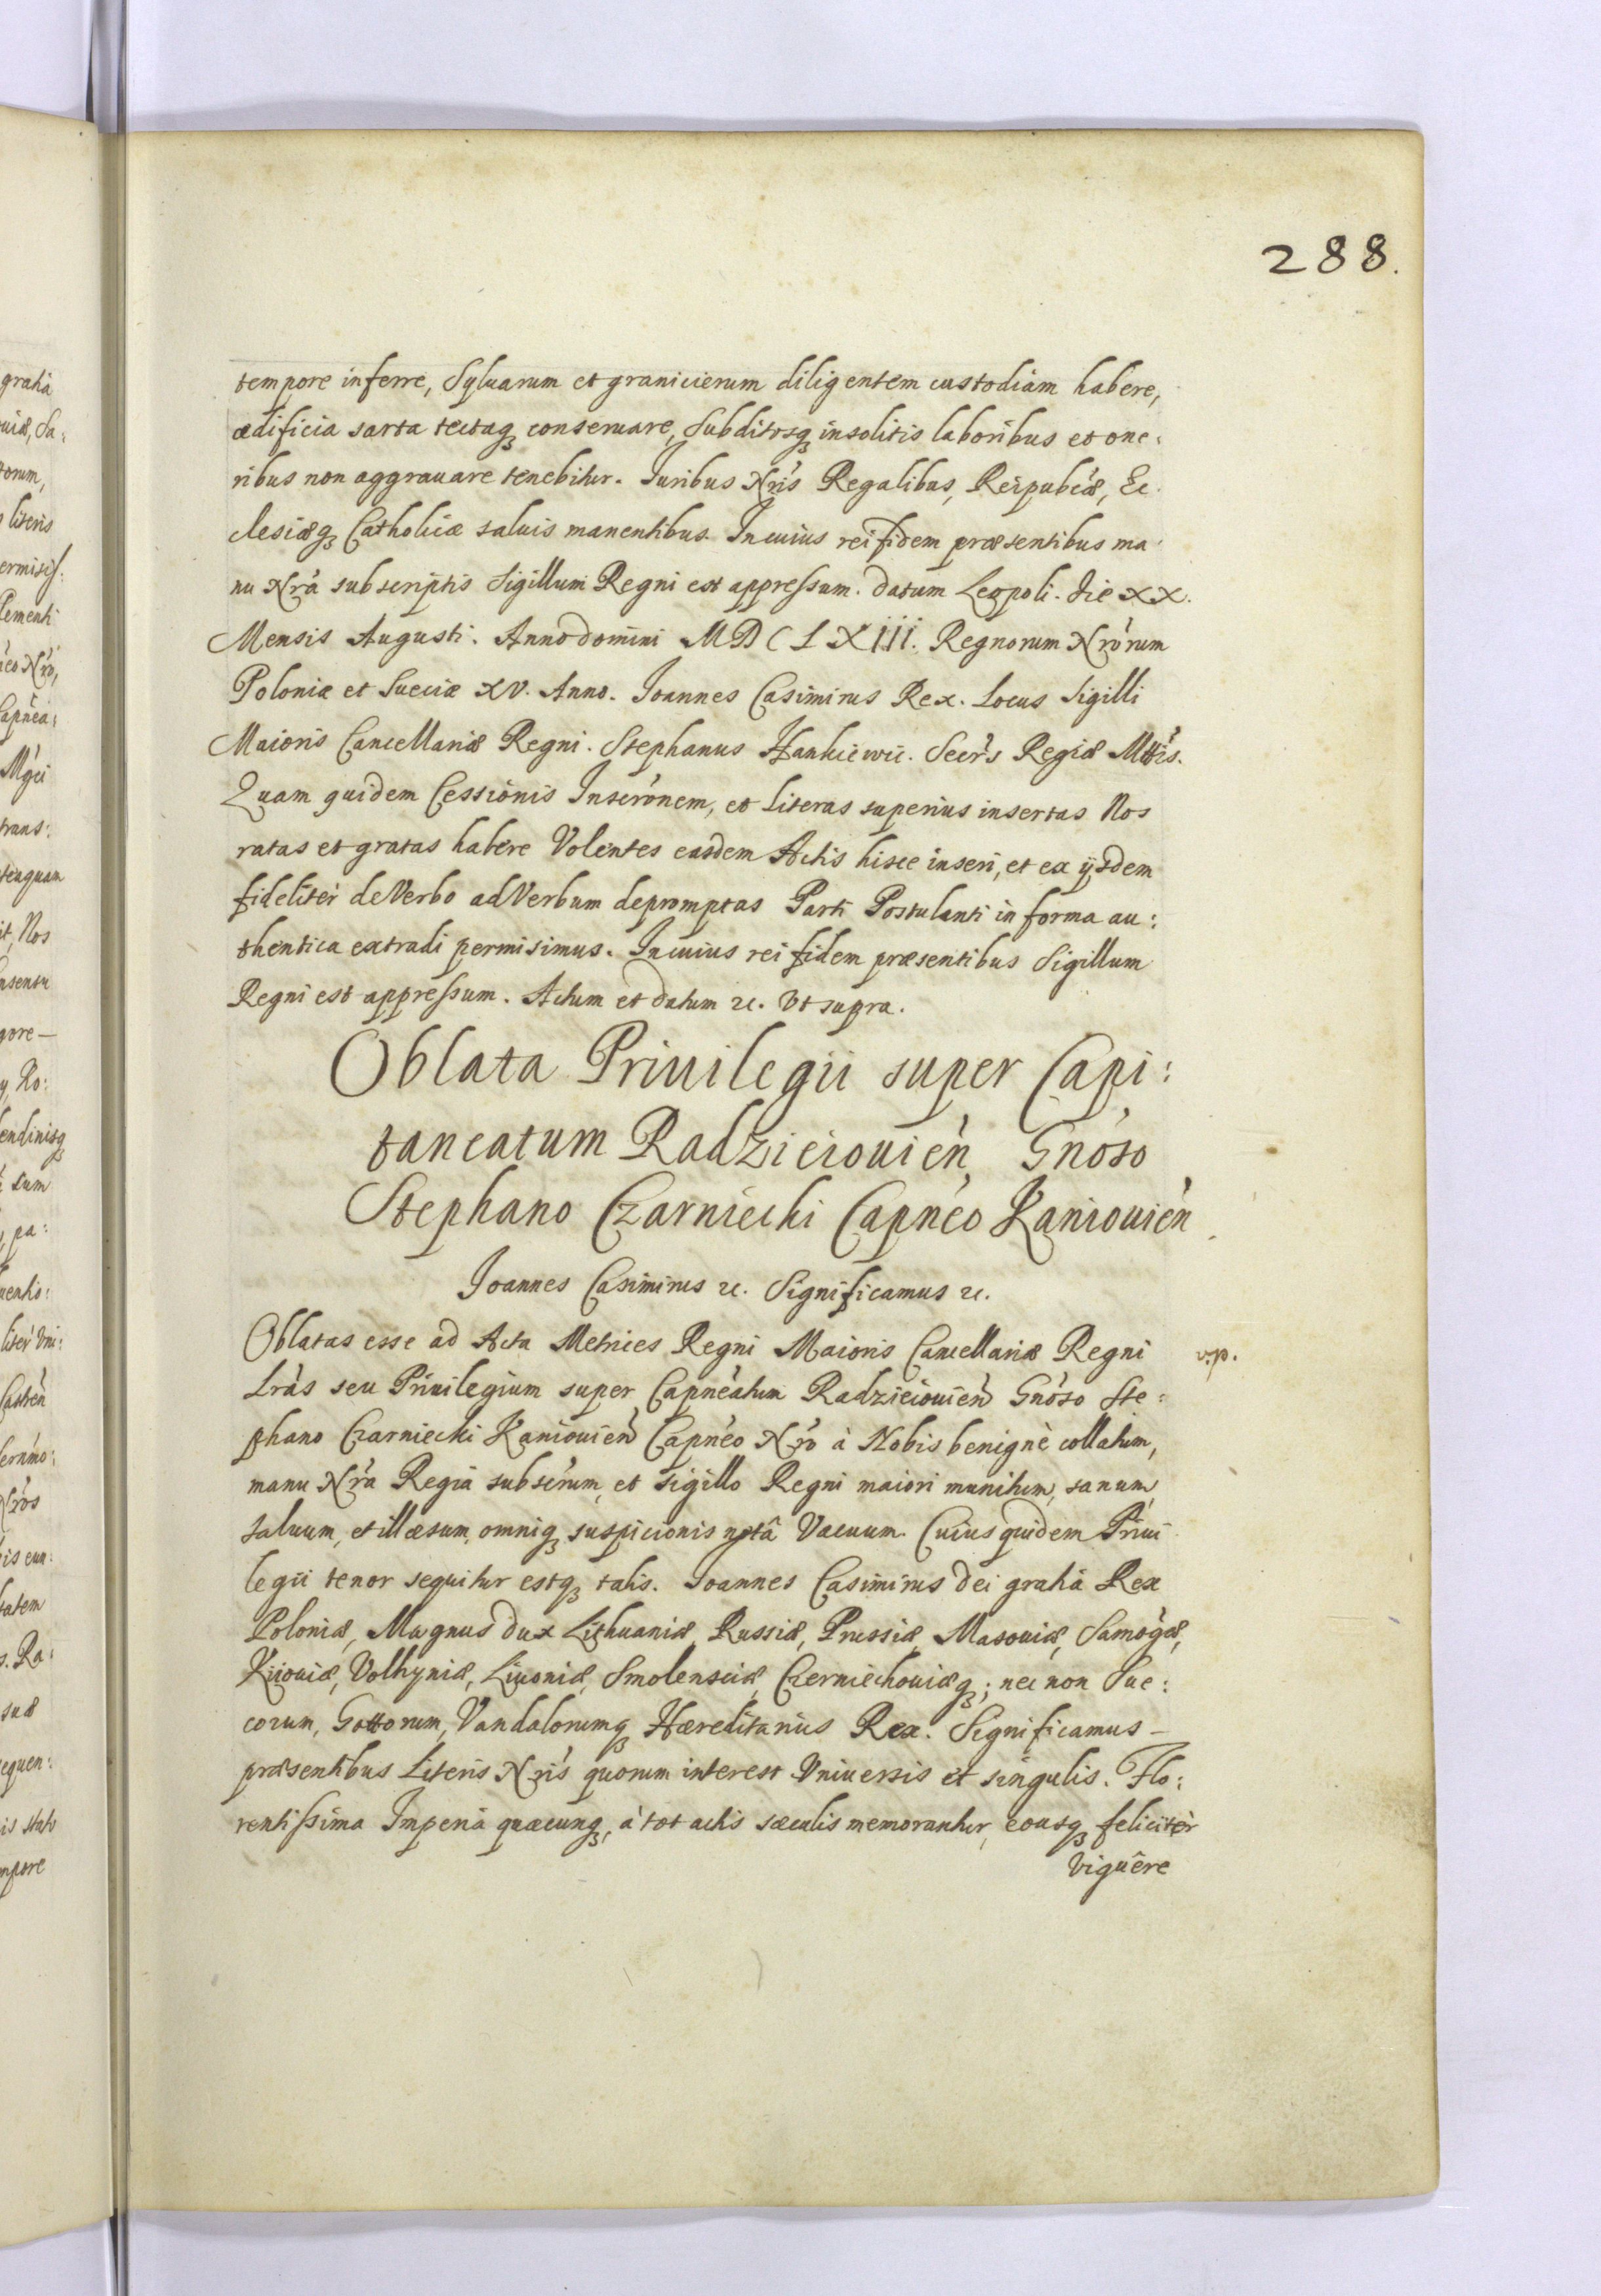 288.
tempore inferre, Syluarum et granicierum diligentem custodiam habere,
ædificia sarta tectaq₃ conseruare, Subditosq₃ insolitis laboribus et one:
ribus non aggrauare tenebitur. Iuribus Nrı̃s Regalibus, Reipubcæ, Ec
clesiæq₃ Catholicæ saluis manentibus. In cuius rei fidem præsentibus ma
nu Nrã subscriptis Sigillum Regni est appressum. Datum Leopoli. Die XX.
Mensis Augusti. Anno domini MDCLXIII. Regnorum Nrõrum
Poloniæ et Sueciæ XV. Anno. Joannes Casimirus Rex. Locus Sigilli
Maioris Cancellariæ Regni. Stephanus Hankiewic. Secrs Regiæ Mttis.
Quam quidem Cessionis Inscronem, et literas superius insertas Nos
ratas et gratas habere Volentes easdem Actis hisce inseri, et ex ijsdem
fideliter de Verbo ad Verbum depromptas Parti Postulanti in forma au:
thentica extradi permisimus. In cuius rei fidem præsentibus Sigillum
Regni est appressum. Actum et datum rc. Vt supra.
Oblata Priuilegii super Capi:
taneatum Radzieiouien Gnoso
Stephano Czarniecki Capneo Kaniouien
Joannes Casimirus rc. Significamus rc.
Oblatas esse ad Acta Metrices Regni Maioris Cancellariæ Regni
v.p.
Lras seu Priuilegium super Capneatum Radzieiouien Gnoso Ste:
phano Czarniecki Kaniouien Capneo Nro à Nobis benignè collatum,
manu Nra Regia subscrum, et sigillo Regni maiori munitum, sanum
saluum, et illæsum, omniq₃ suspicionis notâ Vacuum. Cuius quidem Priui
legii tenor sequitur estq₃ talis. Joannes Casimirus Dei gratia Rex
Poloniæ, Magnus Dux Lithuaniæ, Russiæ, Prussiæ, Masouiæ, Samogæ,
Kijouiæ, Volhyniæ, Liuoniæ, Smolensciæ, Czerniechouiæq₃; nec non Sue:
corum, Gottorum, Vandalorumq₃ Hæreditarius Rex. Significamus –
præsentibus Literis Nris quorum interest Vniuersis et singulis. Flo:
rentissima Imperia quæcunq₃, à tot actis sæculis memorantur, eousq₃ feliciter
viguêre